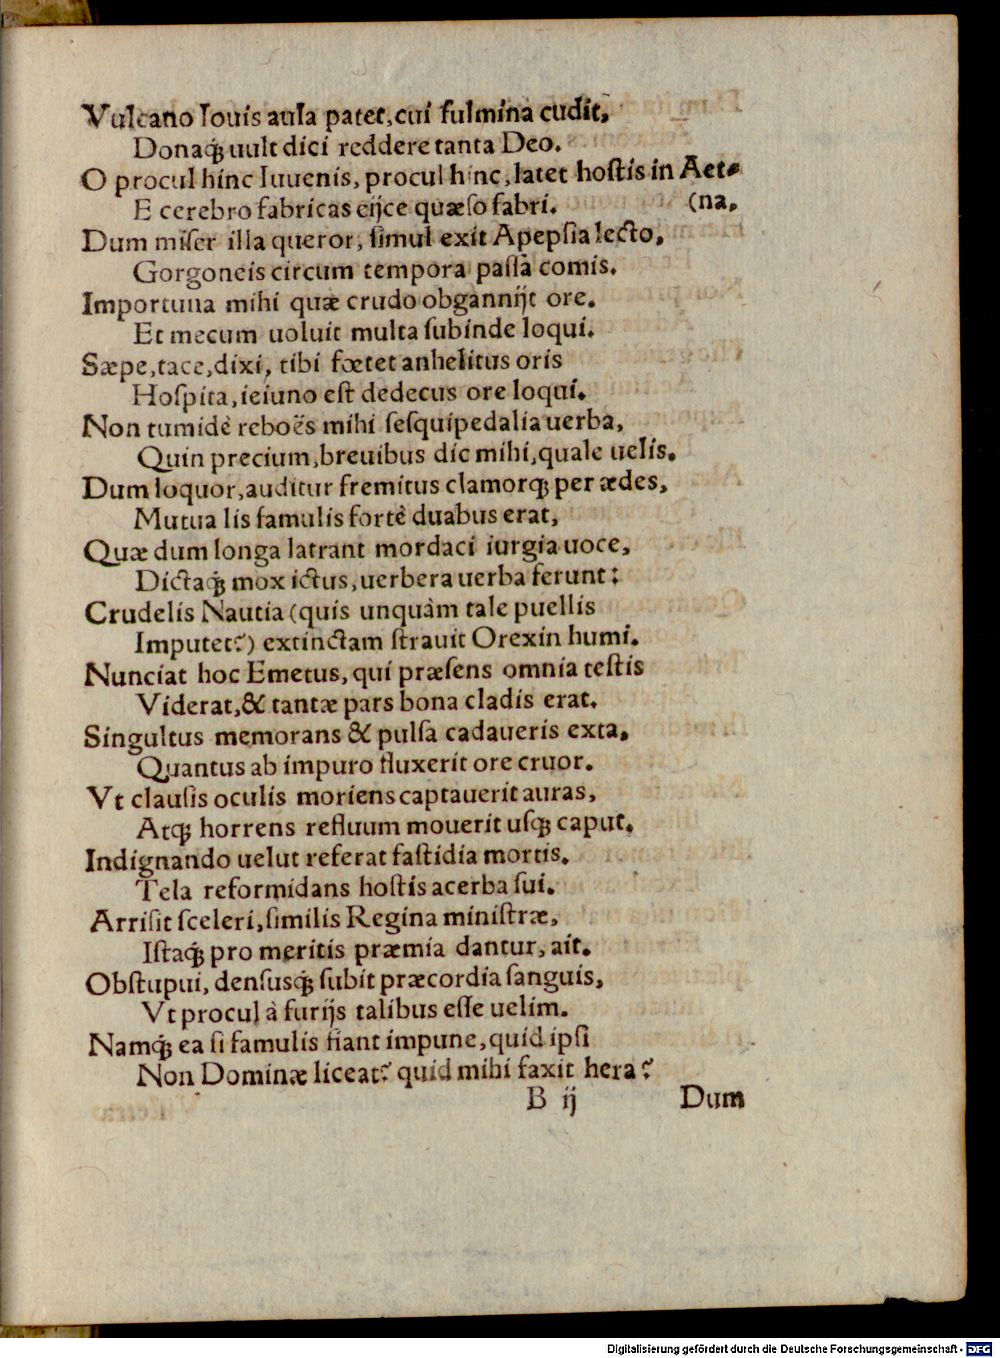 Vulcano Iouis aula patet, cui fulmina cudit,
Donaq́ꝫ uult dici reddere tanta Deo.
O procul hinc Iuuenis, procul hinc, latet hostis in Aet⸗
E cerebro fabricas eijce quæso fabri. (na,
Dum miser illa queror, simul exit Apepsia lecto,
Gorgoneis circum tempora passà comis.
Importuna mihi quæ crudo obgannijt ore.
Et mecum uoluit multa subinde loqui.
Sæpe, tace, dixi, tibi fœtet anhelitus oris
Hospita, ieiuno est dedecus ore loqui.
Non tumidè reboës mihi sesquipedalia uerba,
Quin precium, breuibus dic mihi, quale uelis.
Dum loquor, auditur fremitus clamorqꝫ per ædes,
Mutua lis famulis fortè duabus erat,
Quæ dum longa latrant mordaci iurgia uoce,
Dictaq́ꝫ mox ictus, uerbera uerba ferunt:
Crudelis Nautia (quis unquàm tale puellis
Imputet?) extinctam strauit Orexin humi.
Nunciat hoc Emetus, qui præsens omnia testis
Viderat, & tantæ pars bona cladis erat.
Singultus memorans & pulsa cadaueris exta,
Quantus ab impuro fluxerit ore cruor.
Vt clausis oculis moriens captauerit auras,
Atqꝫ horrens refluum mouerit usqꝫ caput.
Indignando uelut referat fastidia mortis.
Tela reformidans hostis acerba sui.
Arrisit sceleri, similis Regina ministræ,
Istaq́ꝫ pro meritis præmia dantur, ait.
Obstupui, densusq́ꝫ subit præcordia sanguis,
Vt procul à furijs talibus esse uelim.
Namq́ꝫ ea si famulis fiant impune, quid ipsi
Non Dominæ liceat? quid mihi faxit hera?
B ij Dum
Digitalisierung gefördert durch die Deutsche Forschungsgemeinschaft - DFG